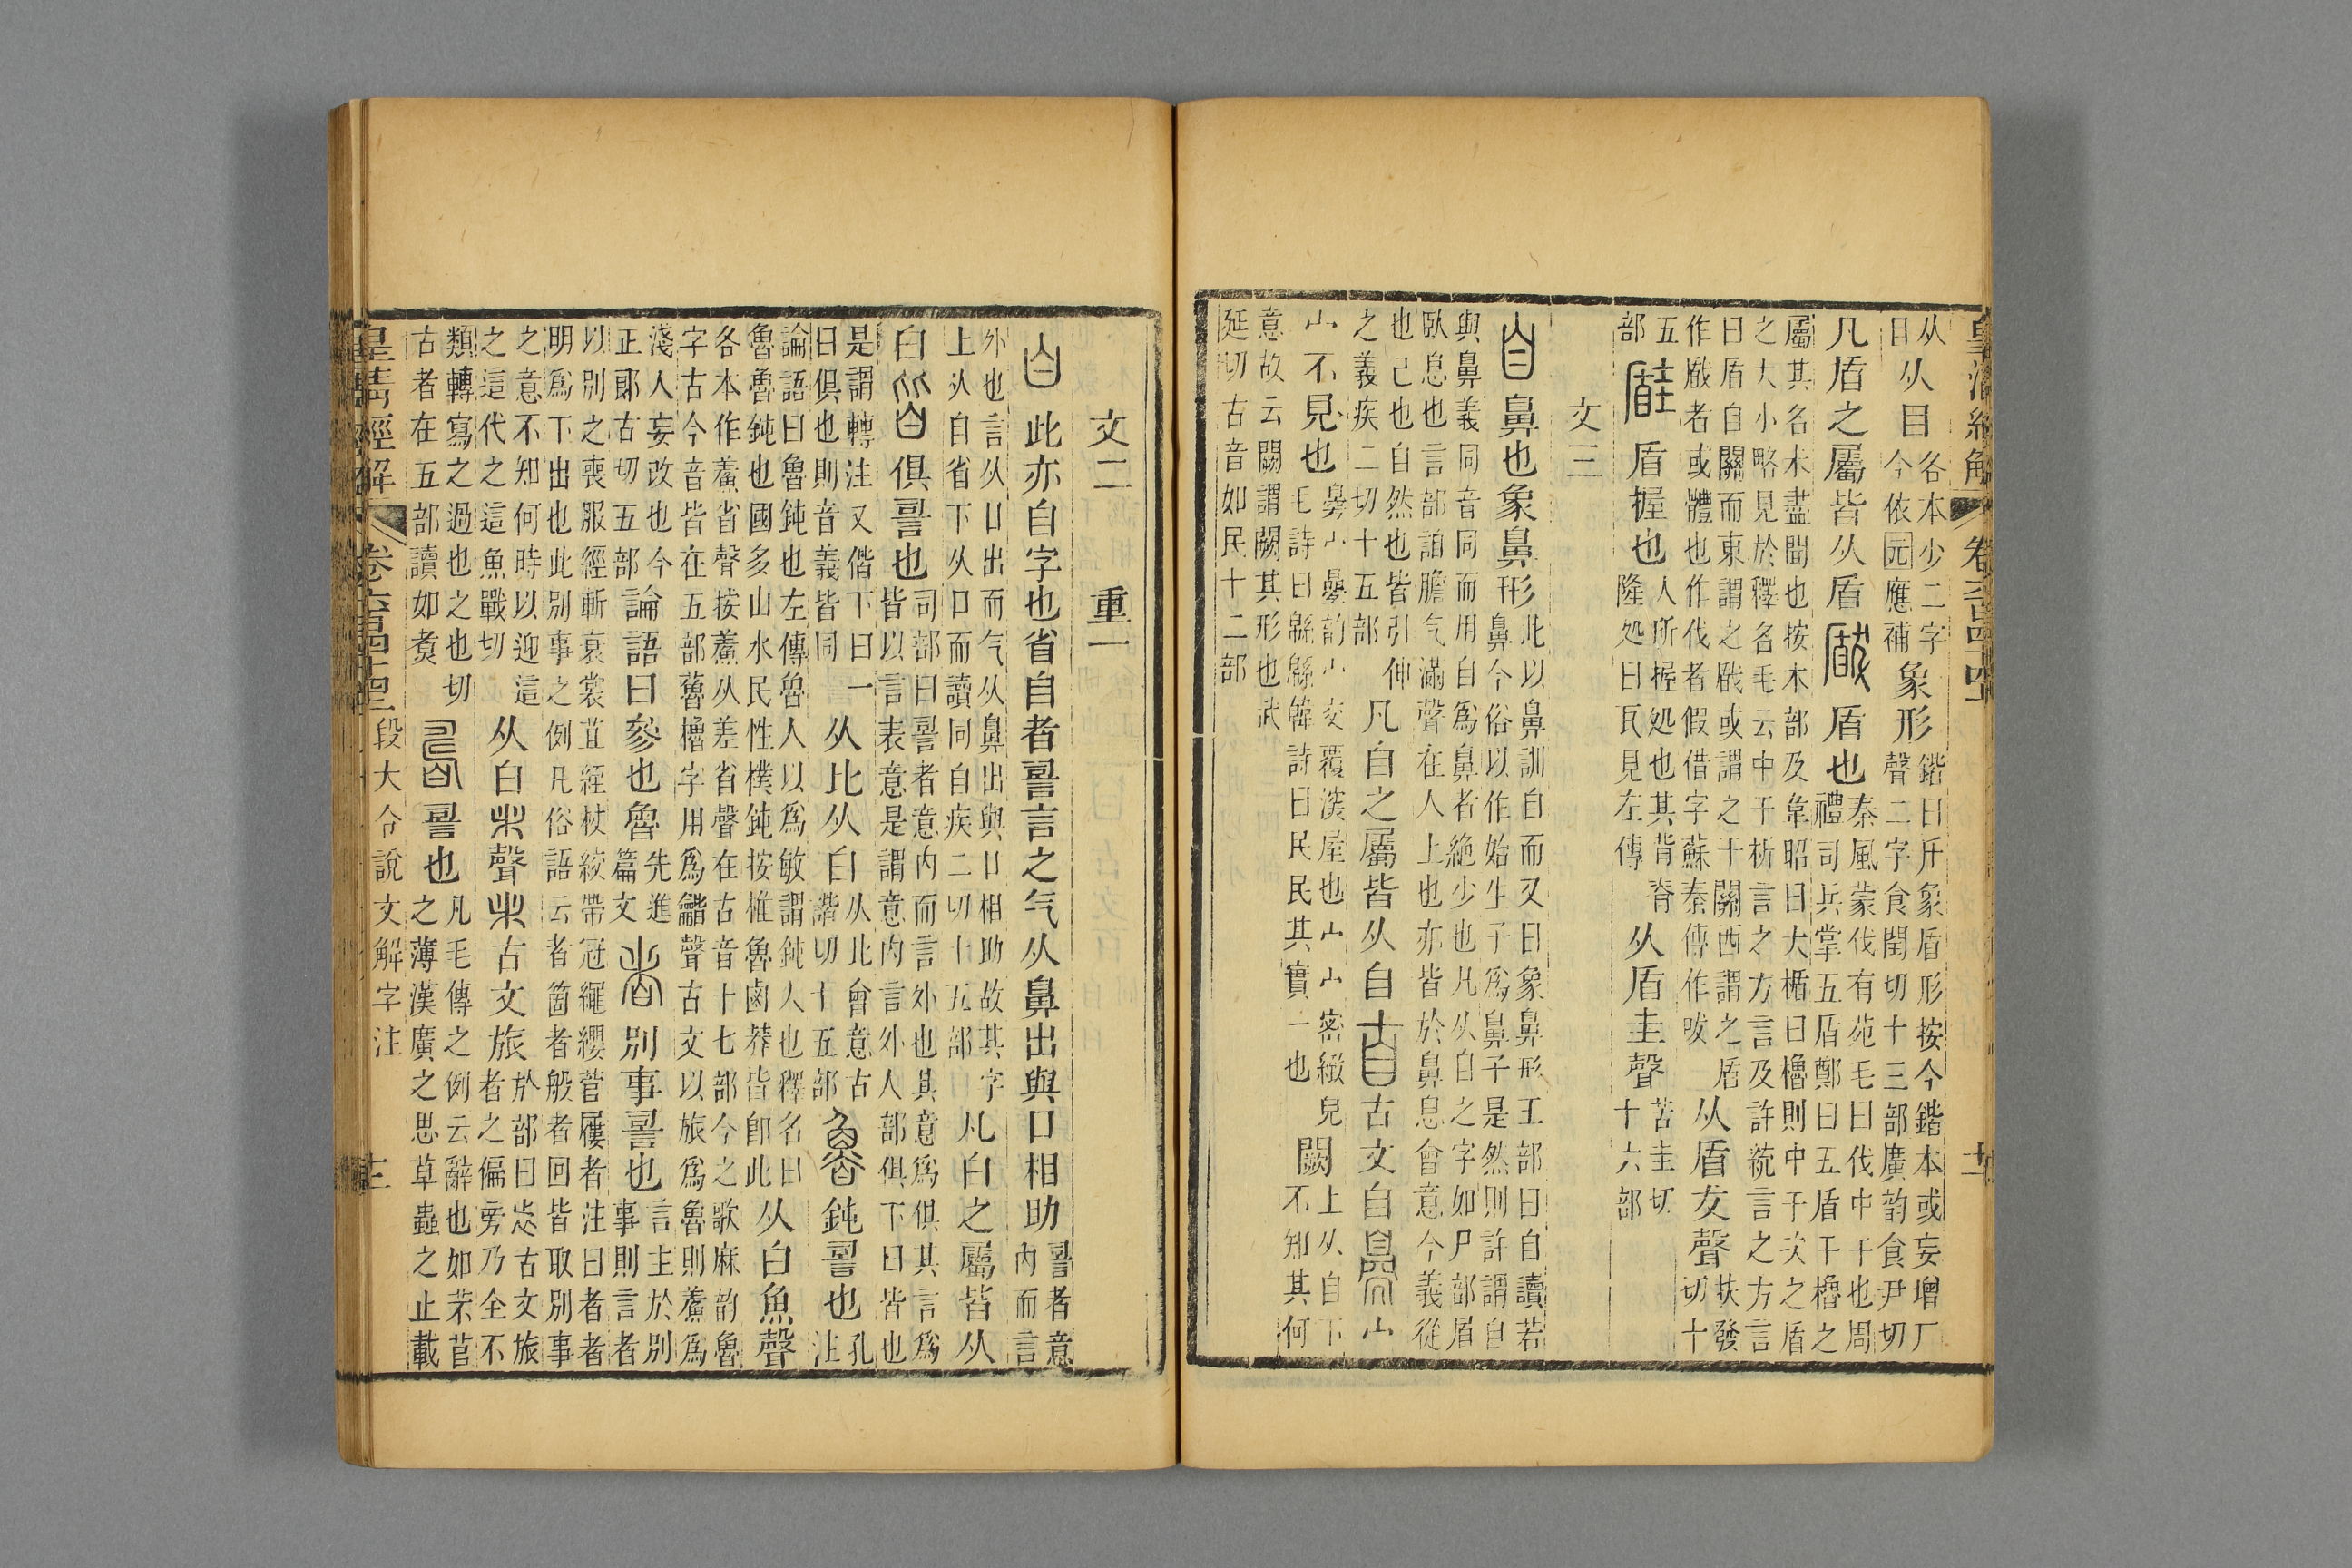 皇清經解 卷六百四十四 十二
从
目
从目
各本少二字
今依元應補
象形
鍇曰𠂆象盾形按今鍇本或妄增厂
聲二字食閏切十三部廣韵食尹切
凡盾之屬皆从盾瞂盾也
秦風蒙伐有苑毛曰伐中干也周
禮司兵掌五盾鄭曰五盾干櫓之
屬其名未盡聞也按木部及韋昭曰大楯曰櫓則中干次之盾
之大小略見於釋名毛云中干析言之方言及許統言之方言
曰盾自關而東謂之瞂或謂之干關西謂之盾
作瞂者或體也作伐者假借字蘇秦傳作㕹
从盾犮聲
扶發
切十
五
部
𥎀盾握也
人所握処也其背脊
隆処曰瓦見左傳
从盾圭聲
苦圭切
十六部
文三
自鼻也象鼻形
此以鼻訓自而又曰象鼻形王部曰自讀若
鼻今俗以作始生子爲鼻子是然則許謂自
與鼻義同音同而用自爲鼻者絶少也凡从自之字如尸部眉
臥息也言部詯膽气滿聲在人上也亦皆於鼻息會意今義從
也己也自然也皆引伸
之義疾二切十五部
凡自之屬皆从自𦣹古文自臱宀
宀不見也
臱宀疊韵宀交覆深屋也宀宀密緻皃
毛詩曰緜緜韓詩曰民民其實一也
闕
上从自下
不知其何
意故云闕謂闕其形也武
延切古音如民十二部
文二 重一
白此亦自字也省自者䛐言之气从鼻出與口相助
䛐者意
内而言
外也言从口出而气从鼻出與口相助故其字
上从自省下从口而讀同自疾二切十五部
凡白之屬皆从
白皆俱䛐也
司部曰䛐者意内而言外也其意爲俱其言爲
皆以言表意是謂意内言外人部俱下曰皆也
是謂轉注又偕下曰一
曰俱也則音義皆同
从比从白
从比會意古
諧切十五部
魯鈍䛐也
孔
注
論語曰魯鈍也左傳魯人以爲敏謂鈍人也釋名曰
魯魯鈍也國多山水民性樸鈍按椎魯鹵莽皆卽此
从白魚聲
各本作䰼省聲按䰼从差省聲在古音十七部今之歌麻韵魯
字古今音皆在五部蘆櫓字用爲龤聲古文以旅爲魯則䰼爲
淺人妄改也今
正郞古切五部
論語曰參也魯
先進
篇文
者別事䛐也
言主於別
事則言者
以別之喪服經斬衰裳苴絰杖絞帶冠繩纓菅屨者注曰者者
明爲下出也此別事之例凡俗語云者箇者般者回皆取別事
之意不知何時以迎這
之這代之這魚戰切
从白𣎵聲𣎵古文旅
於部曰炗古文旅
者之偏旁乃全不
類轉寫之過也之也切
古者在五部讀如煑
𠷎䛐也
凡毛傳之例云辭也如芣苢
之薄漢廣之思草蟲之止載
皇清經解 卷六百四十四 段大令說文解字注 十三